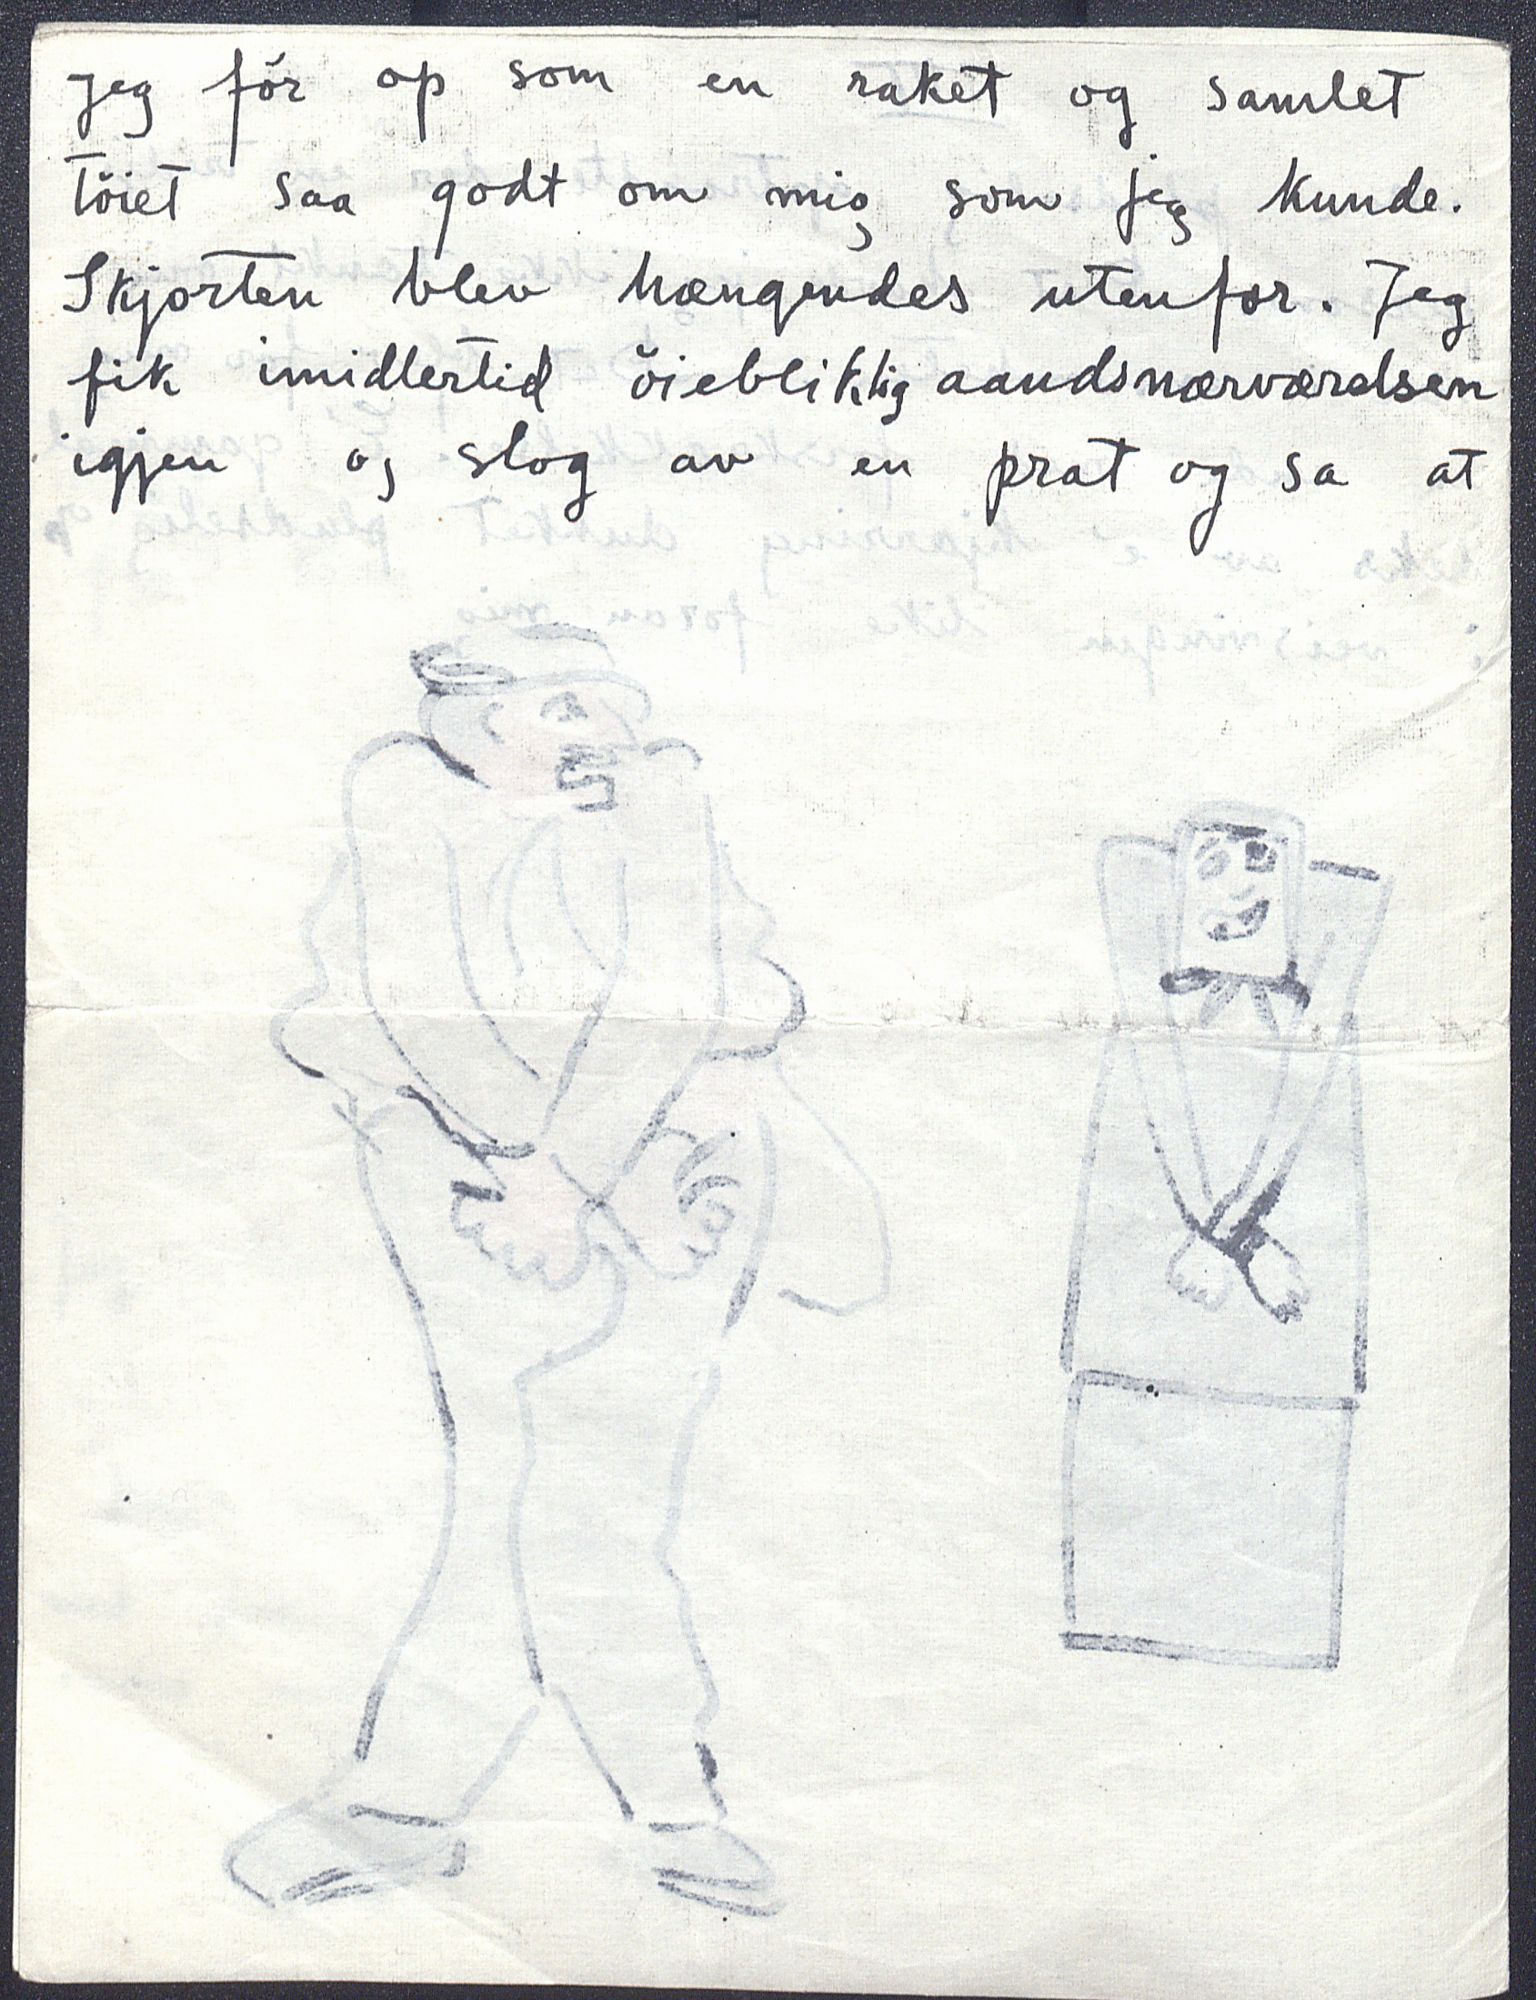 Jeg fór op som en raket og samlet
töiet saa godt om mig som jeg kunde.
Skjorten blev hængendes utenfor. Jeg
fik imidlertid öiebliklig aandsnærværelsen
igjen og slog av en prat og sa at